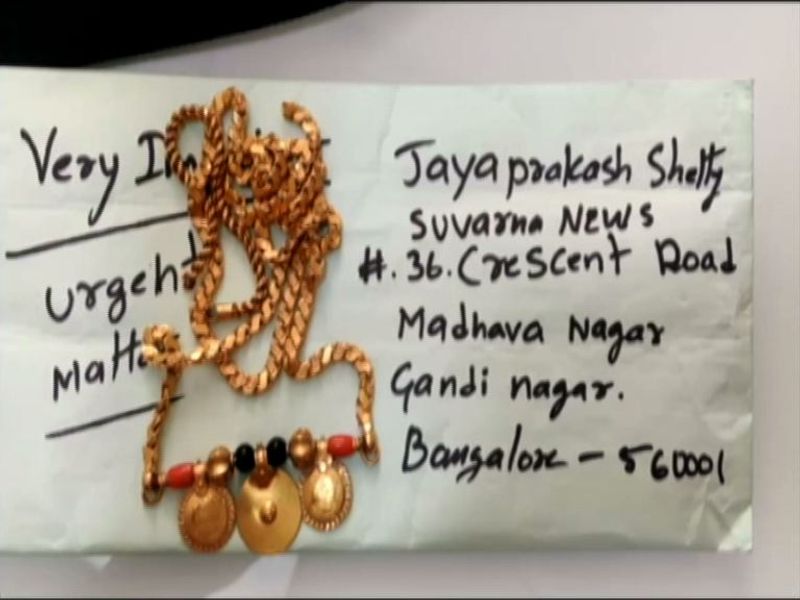 Very
urgent
Jayaprakash Shetty
SUVARNA NEWS
#. 36. Crescent Road
Madhava Nagar
Gandi nagar.
Bangalore - 560001